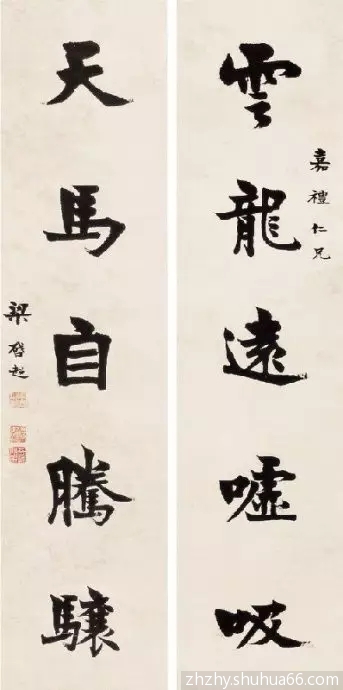 嘉禮仁兄
雲龍遠噓吸
天馬自騰驤
梁啓超
zhzhy.shuhua66.com